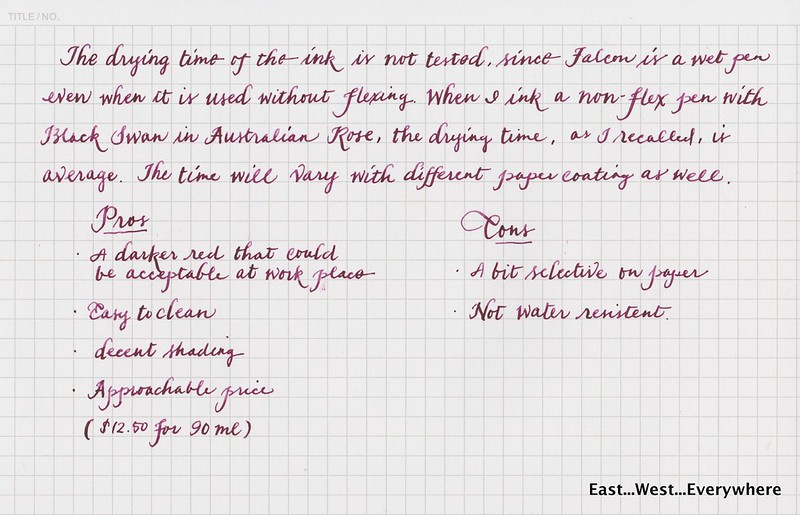 TITLE/NO.
The drying time of the ink is not tested, since Falcon is a wet pen
even when it is used without flexing. When I ink a non-flex pen with
Black Swan in Australian Rose, the drying time, as I recalled, is
average. The time will vary with different paper coating as well.
Pros
· A darker red that could
be acceptable at work place
· Easy to clean
· decent shading
· Approachable price
($12.50 for 90 ml)
Cons
· A bit selective on paper
· Not water resistent.
East...West...Everywhere